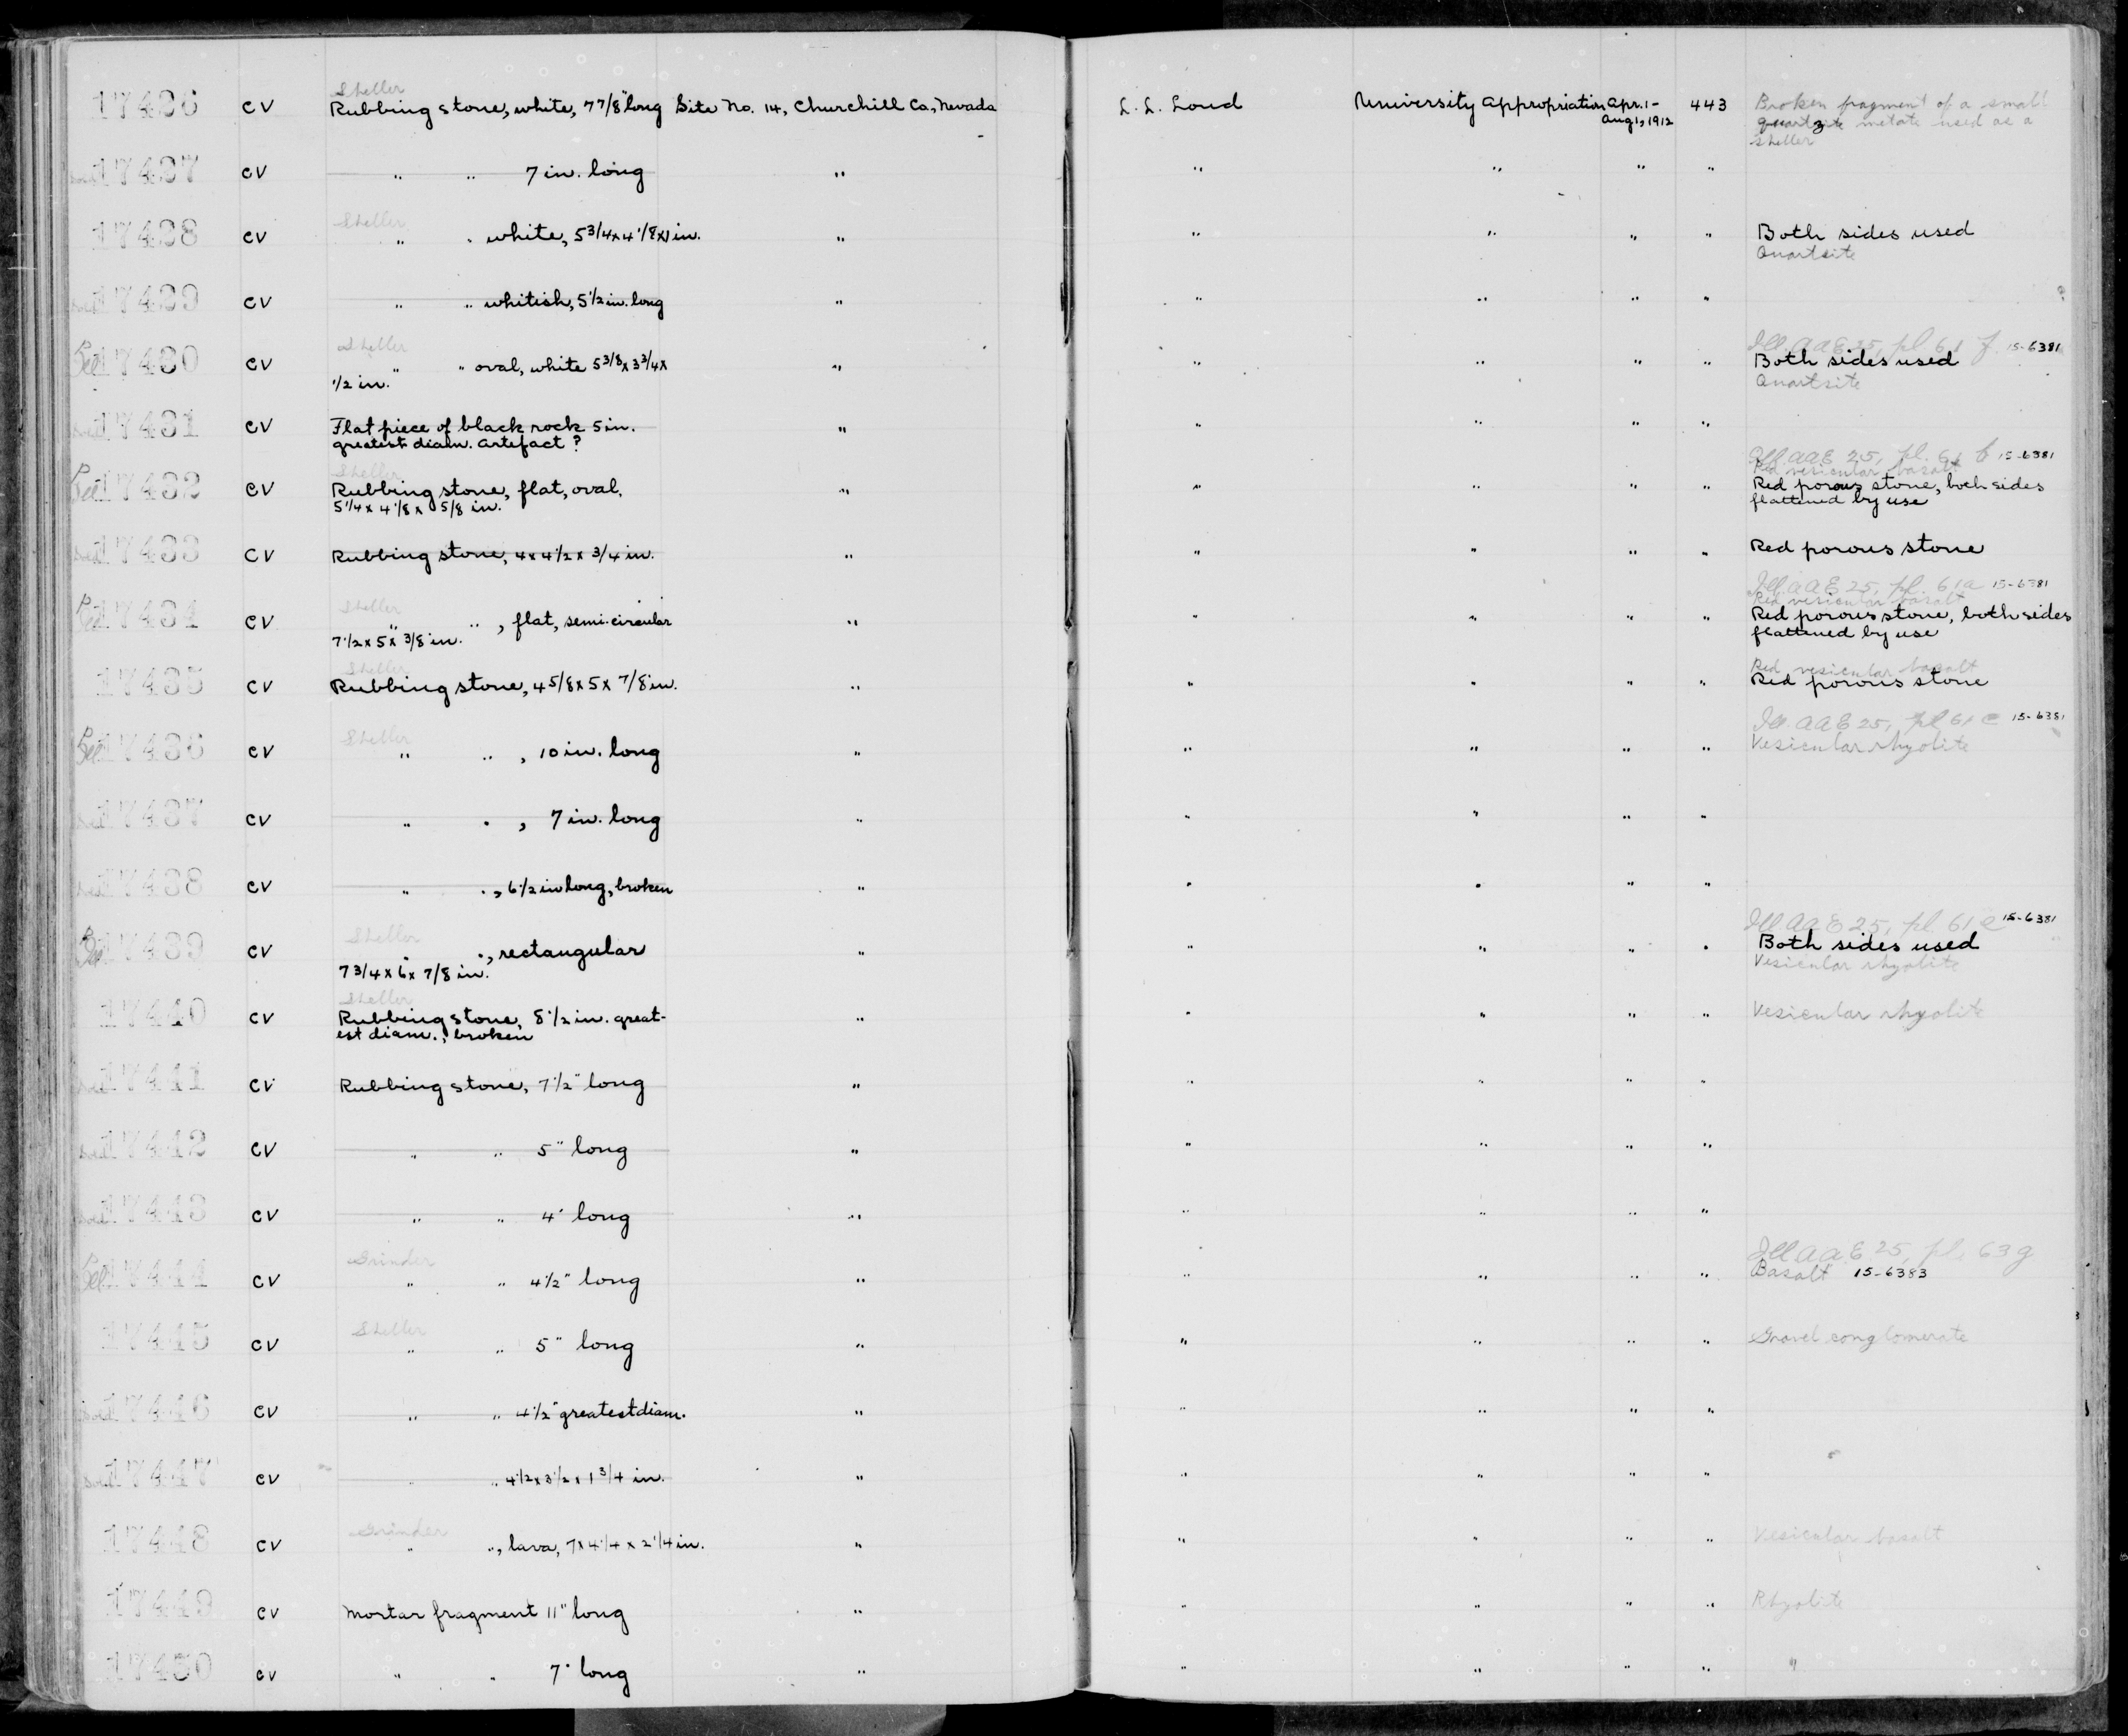 17426 CV Sheller
Rubbing stone, white, 7 7/8" long Site No. 14, Churchill Co., Nevada L. L. Loud University Appropriation Apr. 1 -
Aug 1, 1912 443 Broken fragment of a small
quartzite metate used as a
sheller
17427 CV " " 7 in. long " " " " "
17428 CV Sheller
" " white, 5 3/4 x 4 1/8 x 1 in. " " " " " Both sides used
Quartsite
17429 CV " " whitish, 5 1/2 in. long " " " " "
17430 CV Sheller
" " oval, white 5 3/8 x 3 3/4 x
1/2 in. " " " " " Ill. AAE 25, pl. 61 f 15-6381
Both sides used
Quartsite
17431 CV Flat piece of black rock 5 in.
greatest diam. Artefact ? " " " " "
17432 CV Sheller
Rubbing stone, flat, oval,
5 1/4 x 4 1/8 x 5/8 in. " " " " " Ill AAE 25, pl. 61 b 15-6381
Red vesicular basalt
Red porous stone, both sides
flattened by use
17433 CV Rubbing stone, 4 x 4 1/2 x 3/4 in. " " " " " Red porous stone
17434 CV Sheller
" " , flat, semi-circular
7 1/2 x 5 x 3/8 in. " " " " " Ill AAE 25, pl. 61a 15-6381
Red vesicular basalt
Red porous stone, both sides
flattened by use
17435 CV Sheller
Rubbing stone, 4 5/8 x 5 x 7/8 in. " " " " " Red vesicular basalt
Red porous stone
17436 CV Sheller
" " , 10 in. long " " " " " Ill. AAE 25, pl 61 c 15-6381
Vesicular rhyolite
17437 CV " " , 7 in. long " " " " "
17438 CV " " , 6 1/2 in long, broken " " " " "
17439 CV Sheller
" " , rectangular
7 3/4 x 6 x 7/8 in. " " " " " Ill AAE 25, pl 61 e 15-6381
Both sides used
Vesicular rhyolite
17440 CV Sheller
Rubbing stone, 8 1/2 in. great-
est diam., broken " " " " " Vesicular rhyolite
17441 CV Rubbing stone, 7 1/2" long " " " " "
17442 CV " " 5" long " " " " "
17443 CV " " 4" long " " " " "
17444 CV Grinder
" " 4 1/2" long " " " " " Ill AAE 25, pl. 63 g
Basalt 15-6383
17445 CV Sheller
" " 5" long " " " " " Gravel conglomerate
17446 CV " " 4 1/2" greatest diam. " " " " "
17447 CV " " 4 1/2 x 3 1/2 x 1 3/4 in. " " " " "
17448 CV Grinder
" " , lava, 7 x 4 1/4 x 2 1/4 in. " " " " " Vesicular basalt
17449 CV Mortar fragment 11" long " " " " " Rhyolite
17450 CV " " 7" long " " " " " "